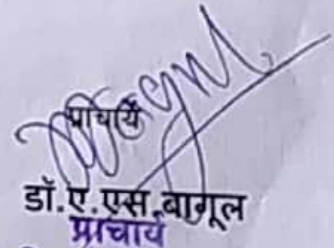 प्राचार्य
डॉ.ए.एस.बागूल
प्राचार्य